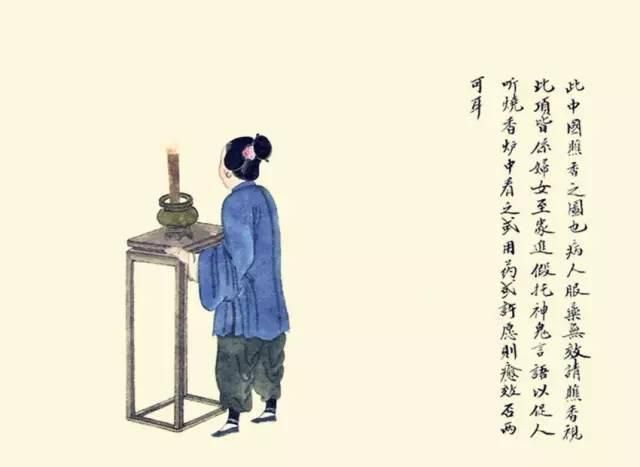 此中國瞧香之圖也病人服藥無效請瞧香視
此項皆係婦女至家進假托神鬼言語以促人
听燒香炉中看之或用药或許愿則癒效否兩
可耳